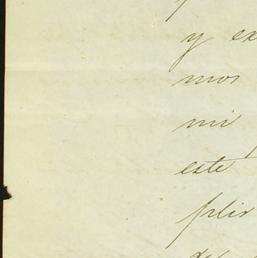 y ex
mos
mi
este
plir
de